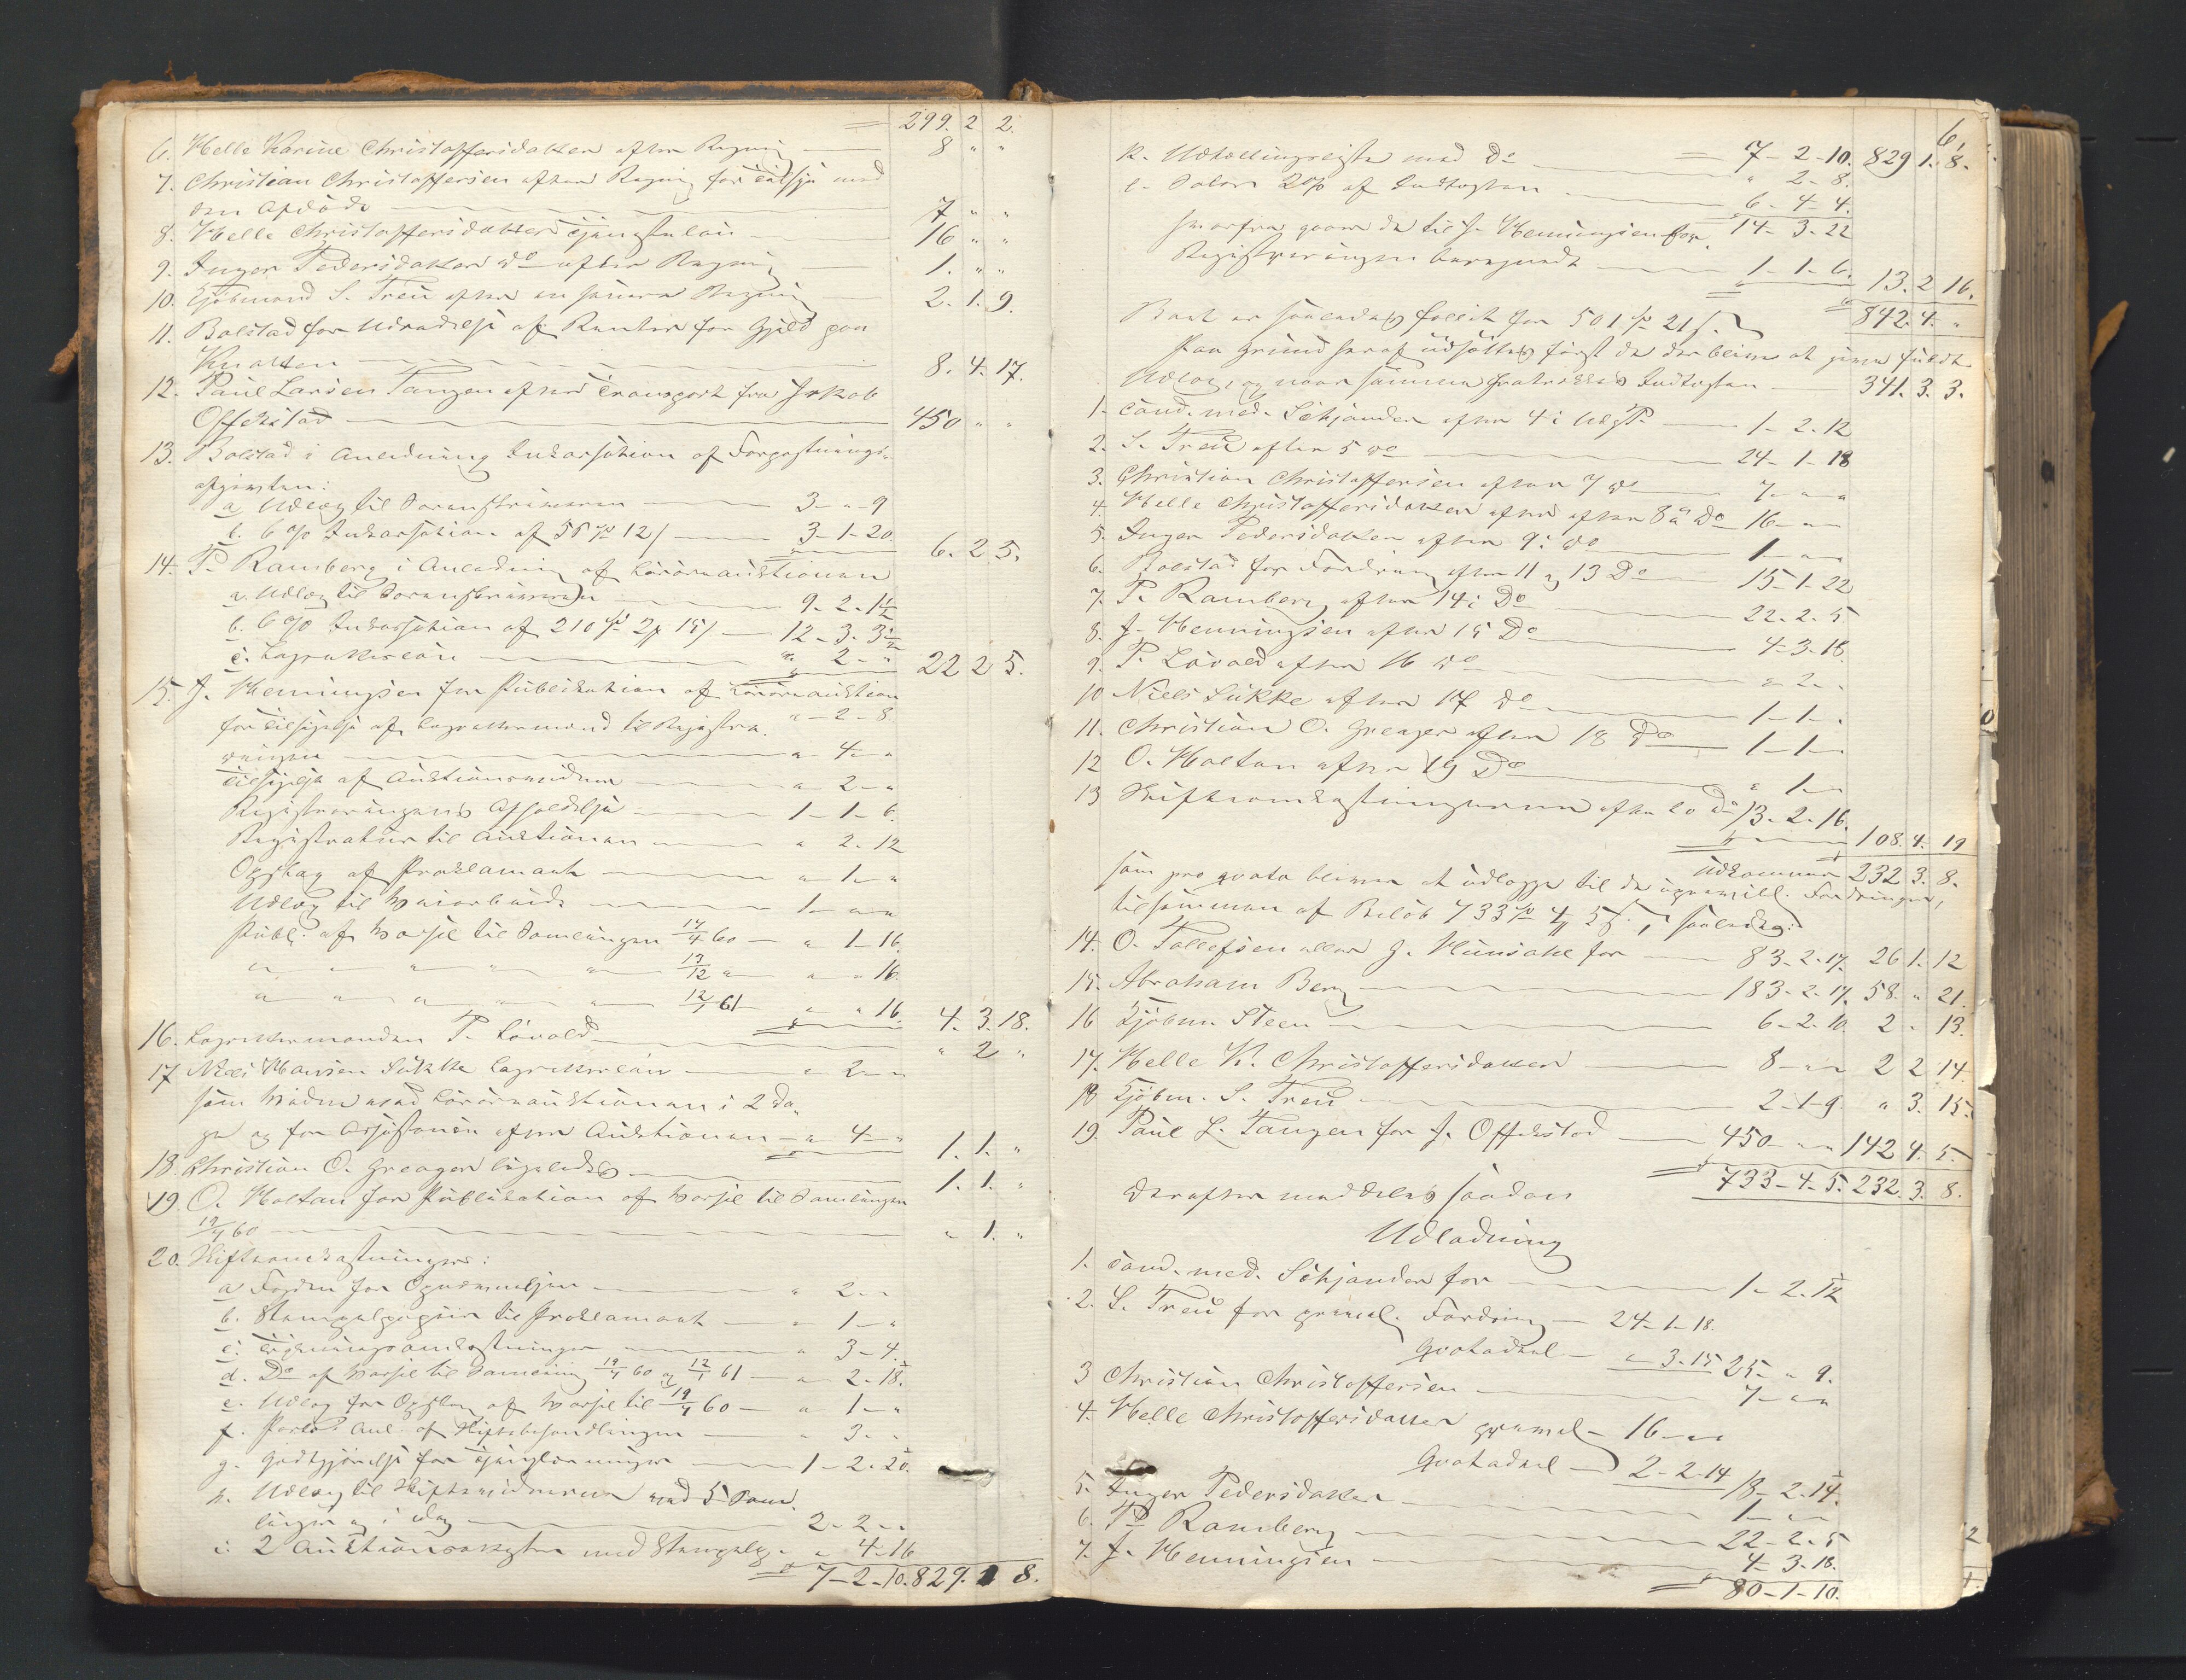 = 299. 2 2.
6. Helle Karine Christoffersdatter efter Regning — 8 " "
7. Christian Christoffersen efter Regning for Tilsyn med
den Afdøde — 7 " "
8. Helle Christoffersdatter Tjenesteløn — 16 " "
9. Inger Pedersdatter Do efter Regning — 1. " "
10. Kjøbmand S. Treu efter en senere Regning — 2. 1. 9.
11. Bolstad for Udredelse af Renter for Gjeld paa
Knatten — 8. 4. 17.
12. Paul Larsen Tangen efter Transport fra Jakob
Offerstad — 450 " "
13. Bolstad i Anledning Inkassation af Forpagtnings-
afgiften:
a. Udlæg til Foranstaaende — 3 - " - 9
b. 6 % Inkassation af 56 Sp 12 / — 3 - 1 - 20. 6. 2 5.
14. P. Ramberg i Anledning af Løsøreauktionen
a. Udlæg til Foranstaaende — 9 - 2 - 1½
b. 6 % Inkassation af 210 Sp 2 # 15 / — 12 - 3 - 3½
c. Lagretterløn — " 2 - " 22 2 5.
15. J. Henningsen for Publikation af Løsøreauktion " - 2 - 8.
for Tilsigelse af Lagrettemænd til Registre-
ringen — " 4 - "
Tilsigelse af Auktionsvidner — " 2 - "
Registreringens Afholdelse — 1 - 1 - 6.
Registratur til Auktionen — " 2 - 12
Opslag af Proklamaet — " 1 - "
Udlæg til — 1 - " "
Publ. af Varsel til Samlingen 17/4 60 — " 1 - 16.
" " " " " 13/12 " " " 16.
" " " " " 12/1 61 " " 16. 4. 3. 18.
16. Lagrettemanden P. Løvald — " 2 "
17 Niels Hansen Lükke Lagretteløn — " 2 - "
som Vidne ved Løsøreauktionen i 2 Da-
ge og for Assistance efter Auktionen — " 4 - " 1. 1. "
18. Christian O. Greager ligeledes — 1. 1. "
19. O. Holtan for Publikation af Varsel til Samlingen
19/4 60 — " 1. "
20. Skifteomkostninger:
a. Foged for — " 2 - "
b. Stempelpapir til Proklamaet — " 1 - "
c. Trykningsomkostninger — " 3 - 4.
d. Do af Varsel til Samling 19/4 60 og 12/1 61 — " 2 - 18.
e. Udlæg for Opslag af Varsel til 19/4 60 — " 1 - "
f. Porto Anl. af Skiftebehandlingen — " 3 - "
g. Godtgjørelse for — 1 - 2 - 20.
h. Udlæg til Skiftevidnerne ved 5 Sam-
linger og i Dag — 2 - 2 - "
i. 2 Auktionsakter med Stempelp. — " 4 - 16
7 - 2 - 10. 829. 1 8.
6.
k. Udtællingsliste med Do = 7 - 2 - 10. 829 1. 8.
" 2 - 8.
l. Salær 2 % af Indtægten — 6 - 4 - 4.
14 - 3 - 22
hvorfra gaaer de til J. Henningsen for
Registreringen beregnede — 1 - 1 - 6. 13. 2 16.
842. 4. "
Boet er saaledes fallit for 501 Sp 21 s.
Paa Grund heraf udsættes først de der blive at give fuldt
Udlæg, og naar samme fratrækkes Indtægten — 341. 3. 3.
1. Cand. med. Schjander efter 4 i Udg. P. — 1 - 2 - 12
2. S. Treu efter 5 Do — 24 - 1 - 18
3. Christian Christoffersen efter 7 Do — 7 - " "
4. Helle Christoffersdatter efter efter 8 a Do — 16 - " "
5. Inger Pedersdatter efter 9 i Do — 1 - " "
6. Bolstad for Fordring efter 11 og 13 Do — 15 - 1 - 22
7. P. Ramberg efter 14 i Do — 22. 2. 5
8. J. Henningsen efter 15 Do — 4 - 3 - 18.
9. P. Løvald efter 16 Do — " 2 - "
10 Niels Lükke efter 17 Do — 1 - 1 - "
11. Christian O. Greager efter 18 Do — 1 - 1 - "
12 O. Holtan efter 19 Do — " 1 - "
13 Skifteomkostningerne efter 20 Do 13. 2 - 16.
= 108. 4. 19
Udkommer 232 3. 8.
som pro qvota bliver at udlægge til de uprivill. Fordringer,
tilsammen af Beløb 733 Sp 4 # 5 s., saaledes:
14. O. Tollefsen eller J. Hunsahl for — 83 - 2 - 17. 26 1. 12
15. Abraham Berg — 183 - 2 - 17. 58. " 21.
16 Kjøbm Steen — 6 - 2 - 10 2 " 13.
17. Helle K. Christoffersdatter — 8 - " " 2 2 14.
18 Kjøbm. S. Treu — 2 - 1 - 9. " 3. 15.
19. Paul L. Tangen for J. Offerstad — 450 - " " 142 4. 5.
= 733 - 4 - 5. 232. 3. 8.
Derefter meddeles saadan
Udlodning
1. Cand. med. Schjander for — 1 - 2. 12
2. S. Treu for privil. Fordring — 24 - 1 - 18.
Qvotadeel — " 3. 15 25 - " 9.
3 Christian Christoffersen — 7 - " "
4. Helle Christoffersdatter privil - 16 - " "
Qvotadeel — 2 - 2. 14 18 - 2. 14.
5. Inger Pedersdatter — 1 - " "
6. P. Ramberg — 22 - 2 - 5
7. J. Henningsen — 4 - 3 - 18.
= 80 - 1 - 10.